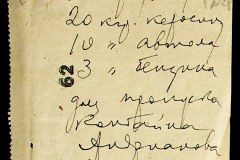 20 кгр. керосину
10 " автола
3 " бензина
62
для пропуска
Комбайна
Андрианова